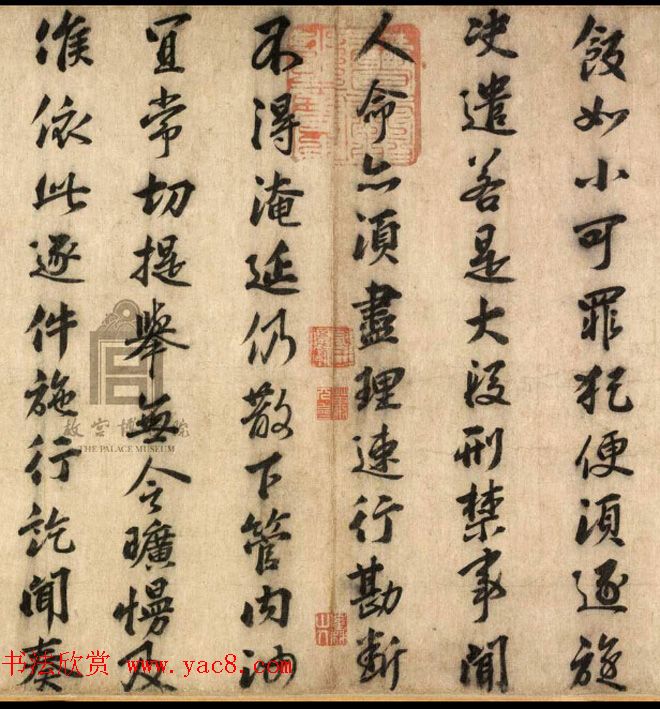 如小可罪犯便須逐旋
决遣若是大段刑禁事
人命亦須盡理速行勘断
不得淹延仍散下管内
宜常切提舉無令曠慢及
候依此逐件施行訖聞奏
故宫博物院
THE PALACE MUSEUM
书法欣赏 www.yac8.com